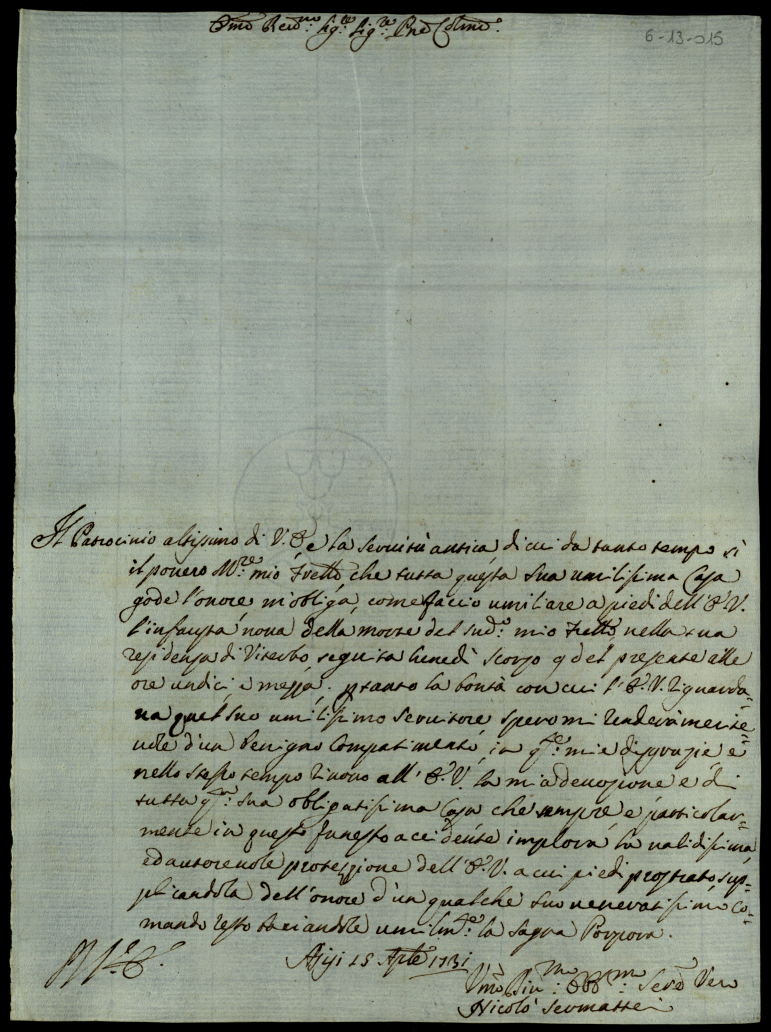 Emo Revmo: Sig:re Sig:re Pne Colmo:
6-13-015
Il Patrocinio altissimo di V: E:, e la servitù antica di cui da tanto tempo sì
il povero M:re mio Frello, che tutta questa sua umilissima Casa
gode l'onore m'obliga, come faccio umiliare a piedi dell'E:V:
l'infausta nova della morte del sud:o mio Frello, nella sua
residenza di Viterbo seguita lunedì scorso 9 del presente alle
ore undici e mezza. ptanto la bontà con cui l'E:V: riguarda=
va quel suo umilissimo servitore spero mi renderà merite=
vole d'un benigno compatimento, in q:te mie disgrazie e
nello stesso tempo rinovo all'E:V: la mia devozione e di
tutta q:ta sua obligatissima Casa che sempre e particolar=
mente in questo funesto accidente implora la validissima,
ed autorevole protezzione dell'E:V: a cui piedi prostrato sup=
plicandola dell'onore d'un qualche suo veneratissimo co=
mando resto baciandole umilm:te la sagra Porpora.
Asisi 15 Aple 1731
Umo Divmo: Obbmo: Servo Vero
Nicolò Sermattei